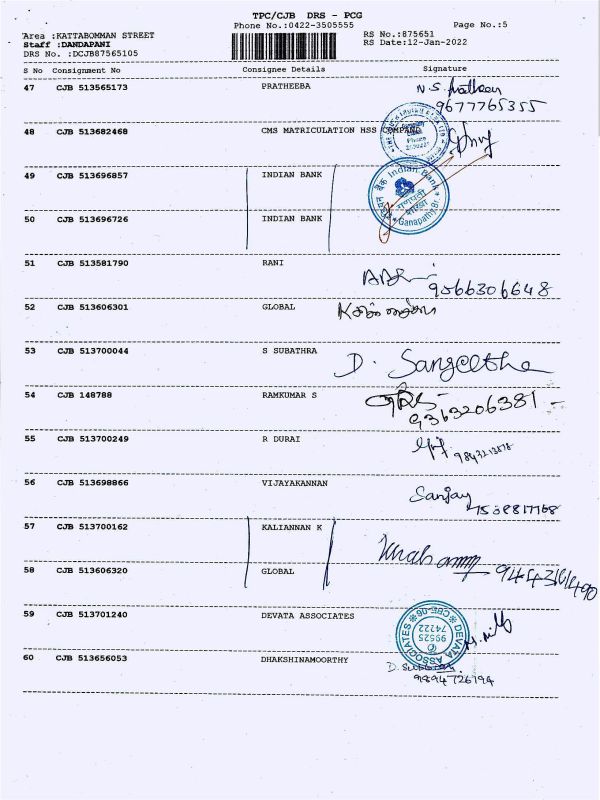 TPC/CJB DRS - PCG
Phone No.:0422-3505555
Page No.:5
Area :KATTABOMMAN STREET
Staff :DANDAPANI
DRS No. :DCJB87565105
RS No.:875651
RS Date:12-Jan-2022
S No Consignment No Consignee Details Signature
47 CJB 513565173 PRATHEEBA
N.S. Pratheen
9677765355
48 CJB 513682468 CMS MATRICULATION HSS COMPANG
49 CJB 513696857 INDIAN BANK
Indian Bank
Ganapathy Br.
50 CJB 513696726 INDIAN BANK
51 CJB 513581790 RANI
9566306648
52 CJB 513606301 GLOBAL
53 CJB 513700044 S SUBATHRA
D. Sangeetha
54 CJB 148788 RAMKUMAR S
9363206381
55 CJB 513700249 R DURAI
56 CJB 513698866 VIJAYAKANNAN
Sanjay
57 CJB 513700162 KALIANNAN K
58 CJB 513606320 GLOBAL
59 CJB 513701240 DEVATA ASSOCIATES
DEVATA ASSOCIATES
CBE-06
99525
74222
60 CJB 513656053 DHAKSHINAMOORTHY
9894726194